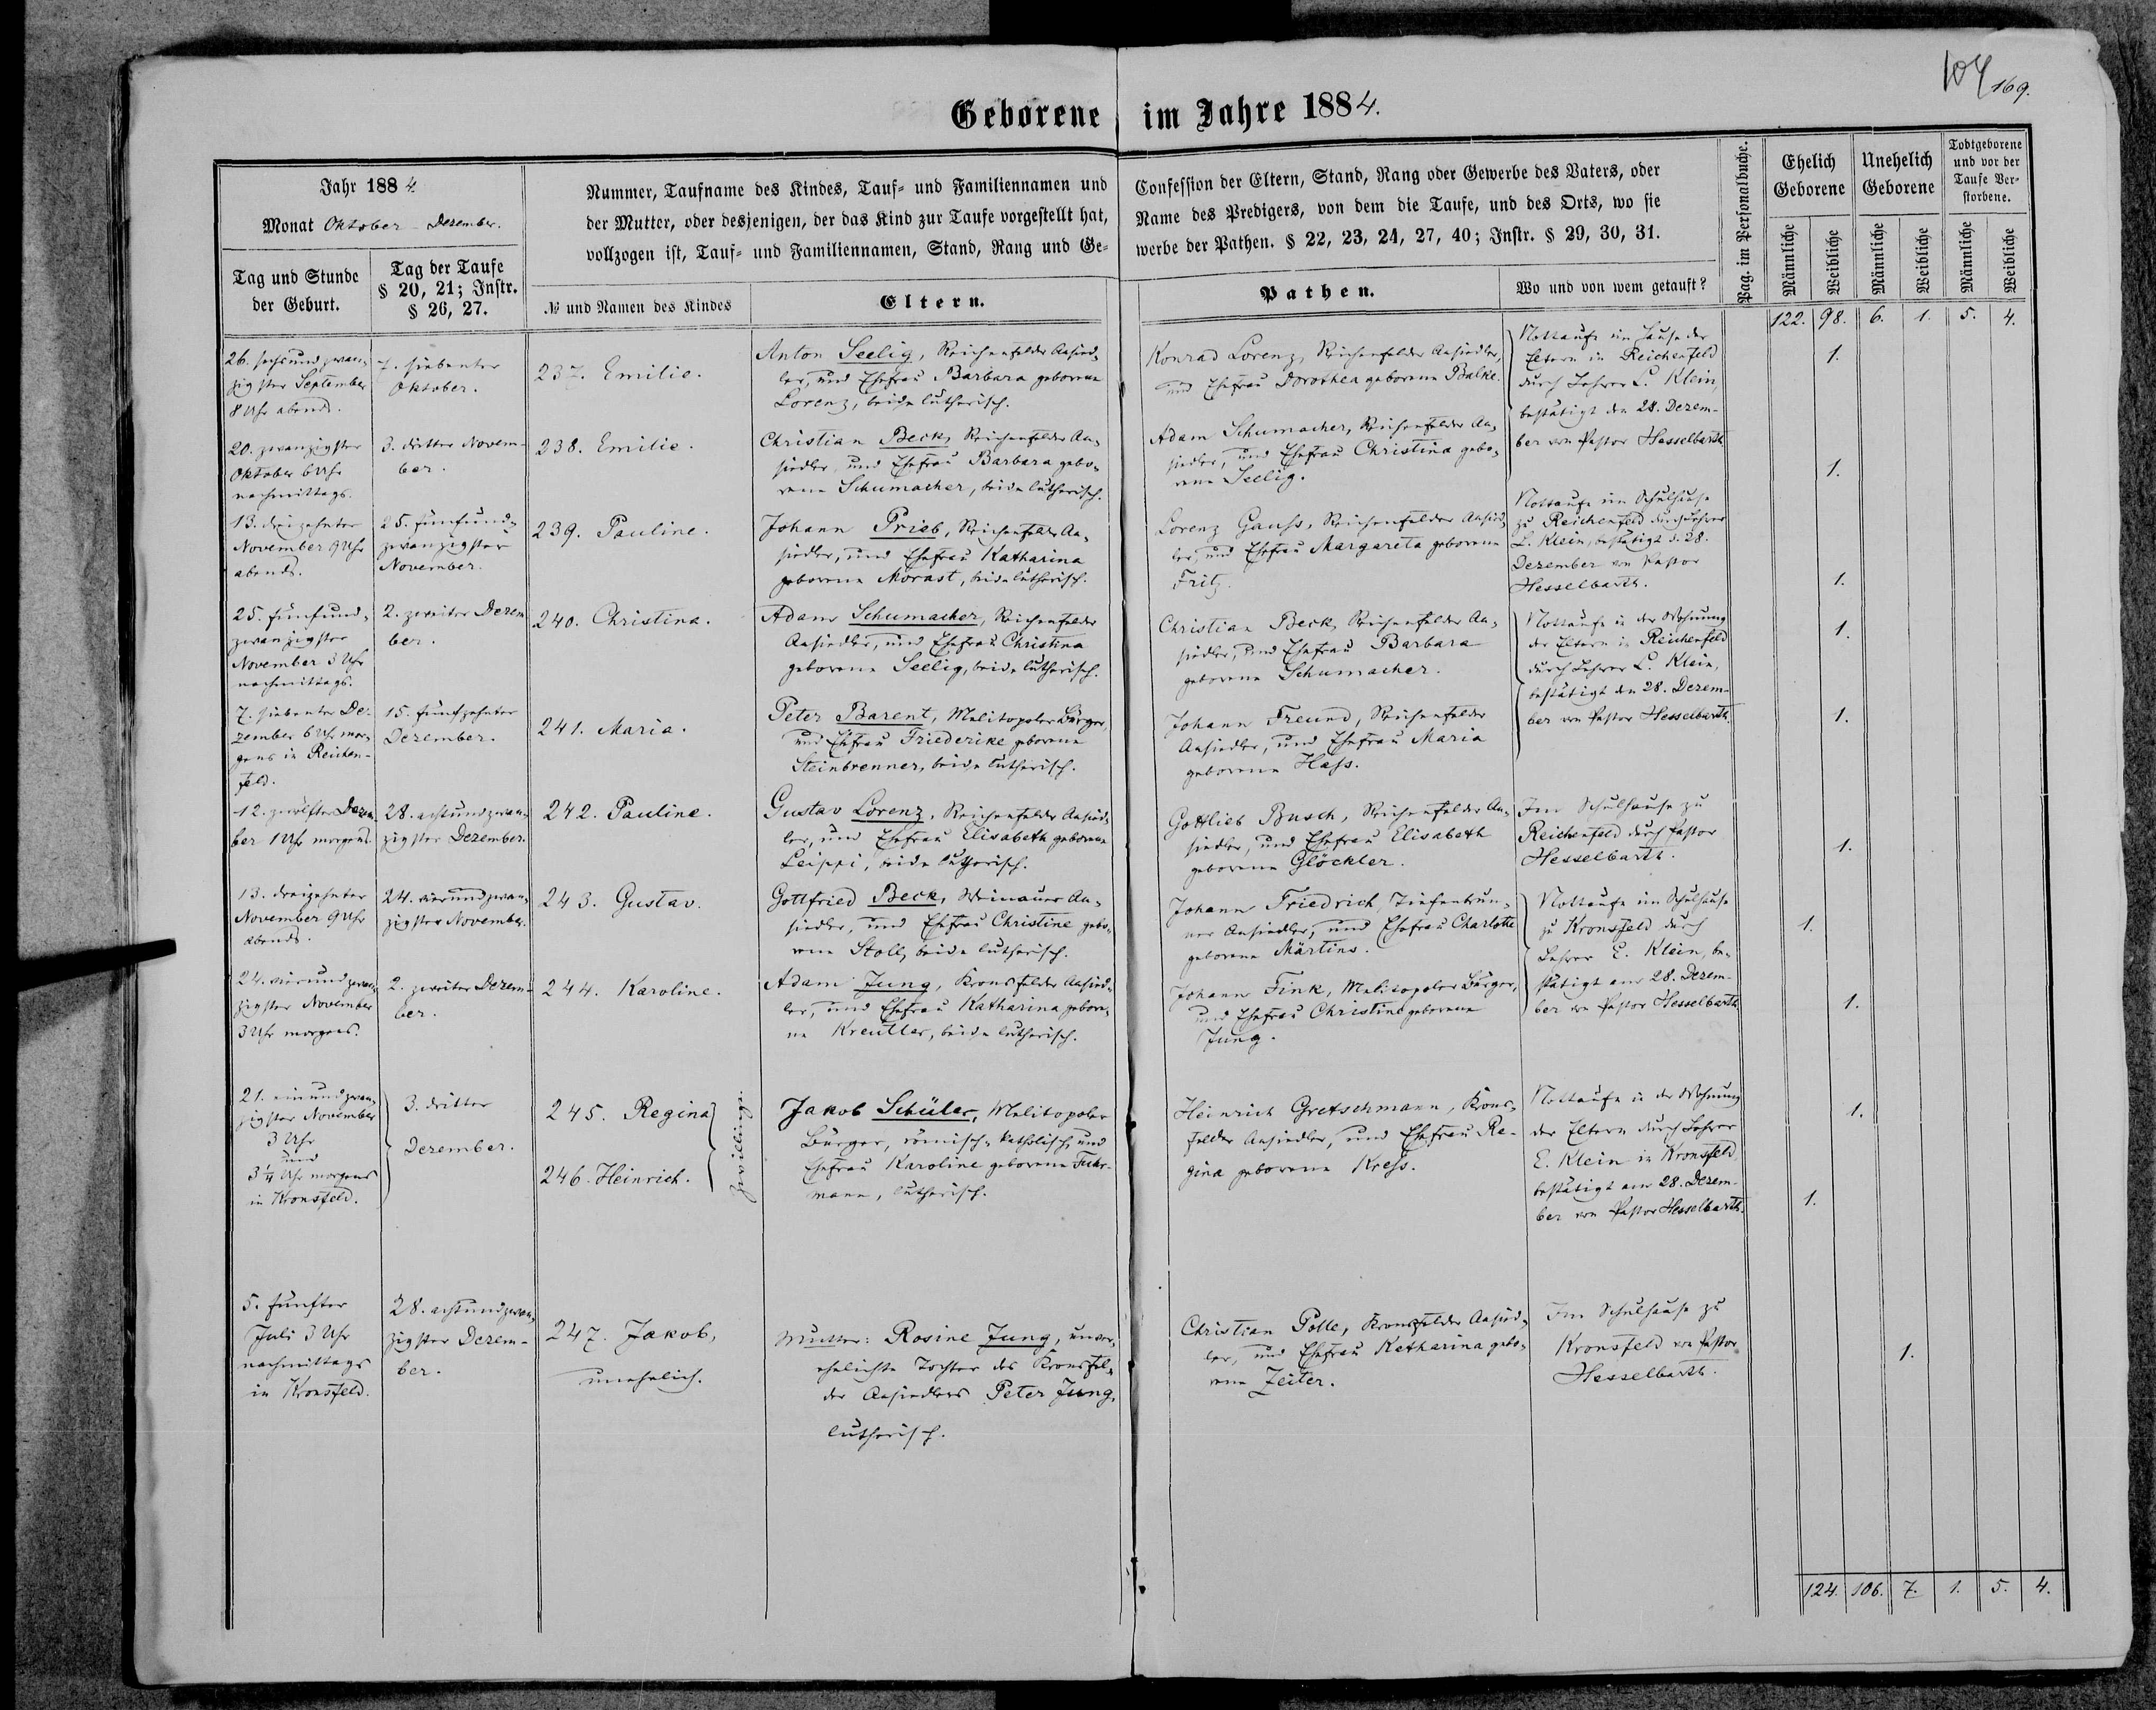 104
169.
Geborene im Jahre 1884.
Jahr 1884.
Monat Oktober - Dezember.
Tag und Stunde
der Geburt.
Tag der Taufe
§ 20, 21; Instr.
§ 26, 27.
Nummer, Taufname des Kindes, Tauf- und Familiennamen und
der Mutter, oder desjenigen, der das Kind zur Taufe vorgestellt hat,
vollzogen ist, Tauf- und Familiennamen, Stand, Rang und Ge-
№ und Namen des Kindes
Eltern.
Confession der Eltern, Stand, Rang oder Gewerbe des Vaters, oder
Name des Predigers, von dem die Taufe, und des Orts, wo sie
werbe der Pathen. § 22, 23, 24, 27, 40; Instr. § 29, 30, 31.
Pathen.
Wo und von wem getauft?
Pag. im Personalbuche.
Ehelich
Geborene
Unehelich
Geborene
Todtgeborene
und vor der
Taufe Ver-
storbene.
Männliche
Weibliche
Männliche
Weibliche
Männliche
Weibliche
122. 98. 6. 1. 5. 4.
26. sechsundzwan-
zigster September
8 Uhr abends.
7. siebenter
Oktober.
237. Emilie.
Anton Seelig, Reichenfelder Ansied-
ler, und Ehefrau Barbara geborene
Lorenz, beide lutherisch.
Konrad Lorenz, Reichenfelder Ansiedler,
und Ehefrau Dorothea geborene Balke.
Nottaufe im Hause der
Eltern in Reichenfeld
durch Lehrer L. Klein,
bestätigt den 28. Dezem-
ber von Pastor Hesselbarth
1.
20. zwanzigster
Oktober 6 Uhr
nachmittags.
3. dritter Novem-
ber.
238. Emilie.
Christian Beck, Reichenfelder An-
siedler, und Ehefrau Barbara gebo-
rene Schumacher, beide lutherisch.
Adam Schumacher, Reichenfelder An-
siedler, und Ehefrau Christina gebo-
rene Seelig.
1.
13. dreizehnter
November 9 Uhr
abends.
25. fünfund-
zwanzigster
November.
239. Pauline.
Johann Prieb, Reichenfelder An-
siedler, und Ehefrau Katharina
geborene Morast, beide lutherisch.
Lorenz Gauss, Reichenfelder Ansied-
ler, und Ehefrau Margareta geborene
Fritz.
Nottaufe im Schulhause
zu Reichenfeld durch Lehrer
L. Klein, bestätigt d. 28.
Dezember von Pastor
Hesselbarth.
1.
25. fünfund-
zwanzigster
November 3 Uhr
nachmittags.
2. zweiter Dezem-
ber.
240. Christina.
Adam Schumacher, Reichenfelder
Ansiedler, und Ehefrau Christina
geborene Seelig, beide lutherisch.
Christian Beck, Reichenfelder An-
siedler, und Ehefrau Barbara
geborene Schumacher.
Nottaufe in der Wohnung
der Eltern in Reichenfeld
durch Lehrer L. Klein,
bestätigt den 28. Dezem-
ber von Pastor Hesselbarth.
1.
7. siebenter De-
zember 6 Uhr mor-
gens in Reichen-
feld.
15. fünfzehnter
Dezember.
241. Maria.
Peter Barent, Melitopoler Bürger,
und Ehefrau Friederike geborene
Steinbrenner, beide lutherisch.
Johann Freund, Reichenfelder
Ansiedler, und Ehefrau Maria
geborene Hass.
1.
12. zwölfter Dezem-
ber 1 Uhr morgens.
28. achtundzwan-
zigster Dezember.
242. Pauline.
Gustav Lorenz, Reichenfelder Ansied-
ler, und Ehefrau Elisabeth geborene
Leippi, beide lutherisch.
Gottlieb Busch, Reichenfelder An-
siedler, und Ehefrau Elisabeth
geborene Glöckler.
Im Schulhause zu
Reichenfeld durch Pastor
Hesselbarth.
1.
13. dreizehnter
November 9 Uhr
abends.
24. vierundzwan-
zigster November.
243. Gustav.
Gottfried Beck, Weinauer An-
siedler, und Ehefrau Christine gebo-
rene Stoll, beide lutherisch.
Johann Friedrich, Tiefenbrun-
ner Ansiedler, und Ehefrau Charlotte
geborene Märtins.
Nottaufe im Schulhause
zu Kronsfeld durch
Lehrer E. Klein, be-
stätigt am 28. Dezem-
ber von Pastor Hesselbarth
1.
24. vierundzwan-
zigster November
3 Uhr morgens.
2. zweiter Dezem-
ber.
244. Karoline.
Adam Jung, Kronsfelder Ansied-
ler, und Ehefrau Katharina gebore-
ne Kreutler, beide lutherisch.
Johann Fink, Melitopoler Bürger,
und Ehefrau Christina geborene
Jung.
1.
21. einundzwan-
zigster November
3 Uhr
und
3¼ Uhr morgens
in Kronsfeld.
3. dritter
Dezember.
245. Regina
246. Heinrich.
Zwillinge.
Jakob Schüler, Melitopoler
Bürger, römisch-katholisch, und
Ehefrau Karoline geborene Fuhr-
mann, lutherisch.
Heinrich Gretschmann, Krons-
felder Ansiedler, und Ehefrau Re-
gina geborene Kress.
Nottaufe in der Wohnung
der Eltern durch Lehrer
E. Klein in Kronsfeld,
bestätigt am 28. Dezem-
ber von Pastor Hesselbarth.
1.
1.
5. fünfter
Juli 3 Uhr
nachmittags
in Kronsfeld.
28. achtundzwan-
zigster Dezem-
ber.
247. Jakob,
unehelich.
Mutter: Rosine Jung, unver-
ehelichte Tochter des Kronsfel-
der Ansiedlers Peter Jung,
lutherisch.
Christian Polle, Kronsfelder Ansied-
ler, und Ehefrau Katharina gebo-
rene Zeiter.
Im Schulhause zu
Kronsfeld von Pastor
Hesselbarth.
1.
124. 106. 7. 1. 5. 4.